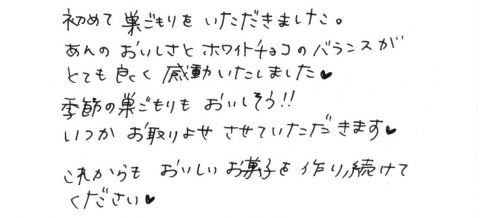 初めて巣ごもりをいただきました。
あんのおいしさとホワイトチョコのバランスが
とても良く感動いたしました♥
季節の巣ごもりもおいしそう!!
いつかお取りよせさせていただきます♥
これからもおいしいお菓子を作り続けて
ください♥